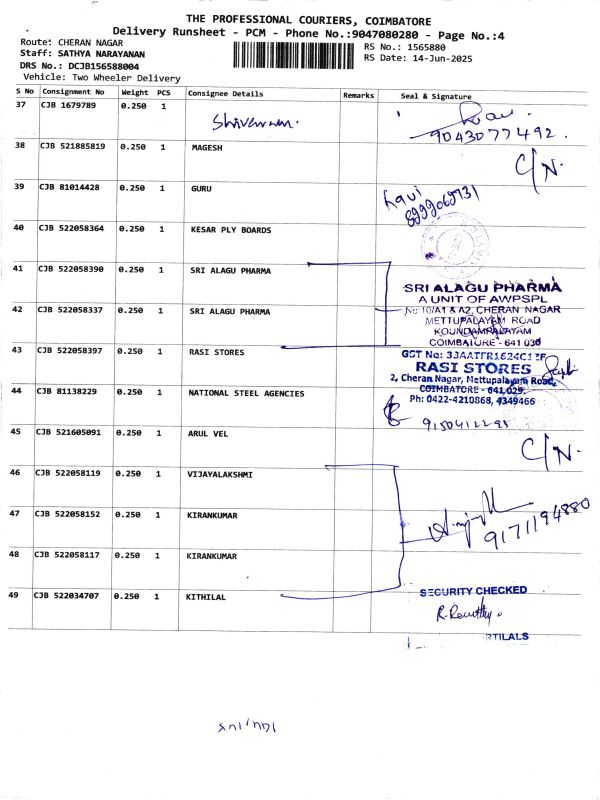 THE PROFESSIONAL COURIERS, COIMBATORE
Delivery Runsheet - PCM - Phone No.:9047080280 - Page No.:4
Route: CHERAN NAGAR
Staff: SATHYA NARAYANAN
DRS No.: DCJB156588004
Vehicle: Two Wheeler Delivery
RS No.: 1565880
RS Date: 14-Jun-2025
S No Consignment No Weight PCS Consignee Details Remarks Seal & Signature
37 CJB 1679789 0.250 1
9043077492.
38 CJB 521885819 0.250 1 MAGESH C/N.
39 CJB 81014428 0.250 1 GURU
40 CJB 522058364 0.250 1 KESAR PLY BOARDS
41 CJB 522058390 0.250 1 SRI ALAGU PHARMA
42 CJB 522058337 0.250 1 SRI ALAGU PHARMA
SRI ALAGU PHARMA
A UNIT OF AWPSPL
No 10/A1 & A2, CHERAN NAGAR
METTUPALAYAM ROAD
KOUNDAMPALAYAM
COIMBATORE - 641 030
43 CJB 522058397 0.250 1 RASI STORES
GST No:
RASI STORES
2, Cheran Nagar, Mettupalayam Road,
COIMBATORE - 641 029.
Ph: 0422-4210868, 4349466
44 CJB 81138229 0.250 1 NATIONAL STEEL AGENCIES
45 CJB 521605091 0.250 1 ARUL VEL C/N.
46 CJB 522058119 0.250 1 VIJAYALAKSHMI
47 CJB 522058152 0.250 1 KIRANKUMAR
9171194880
48 CJB 522058117 0.250 1 KIRANKUMAR
49 CJB 522034707 0.250 1 KITHILAL
SECURITY CHECKED